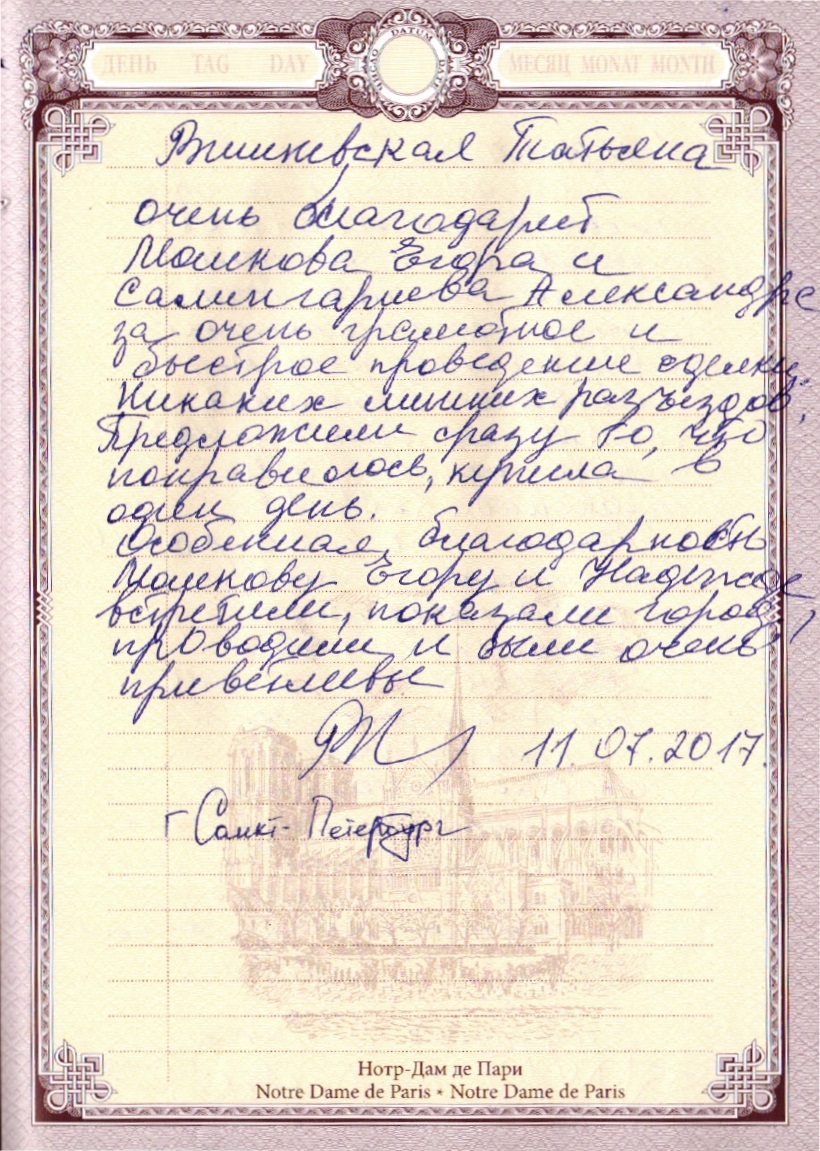 ДЕНЬ TAG DAY
DATUM
МЕСЯЦ MONAT MONTH
Вишневская Татьяна
очень благодарит
Машкова Егора и
Салимгариева Александра
за очень грамотное и
быстрое проведение сделки,
Никаких лишних разъездов,
Предложили сразу то, что
понравилось, купила в
один день.
Особенная благодарность
Машкову Егору и Надежде
встретили, показали город,
проводили и были очень
приветливы
11.07.2017.
г Санкт-Петербург
Нотр-Дам де Пари
Notre Dame de Paris * Notre Dame de Paris